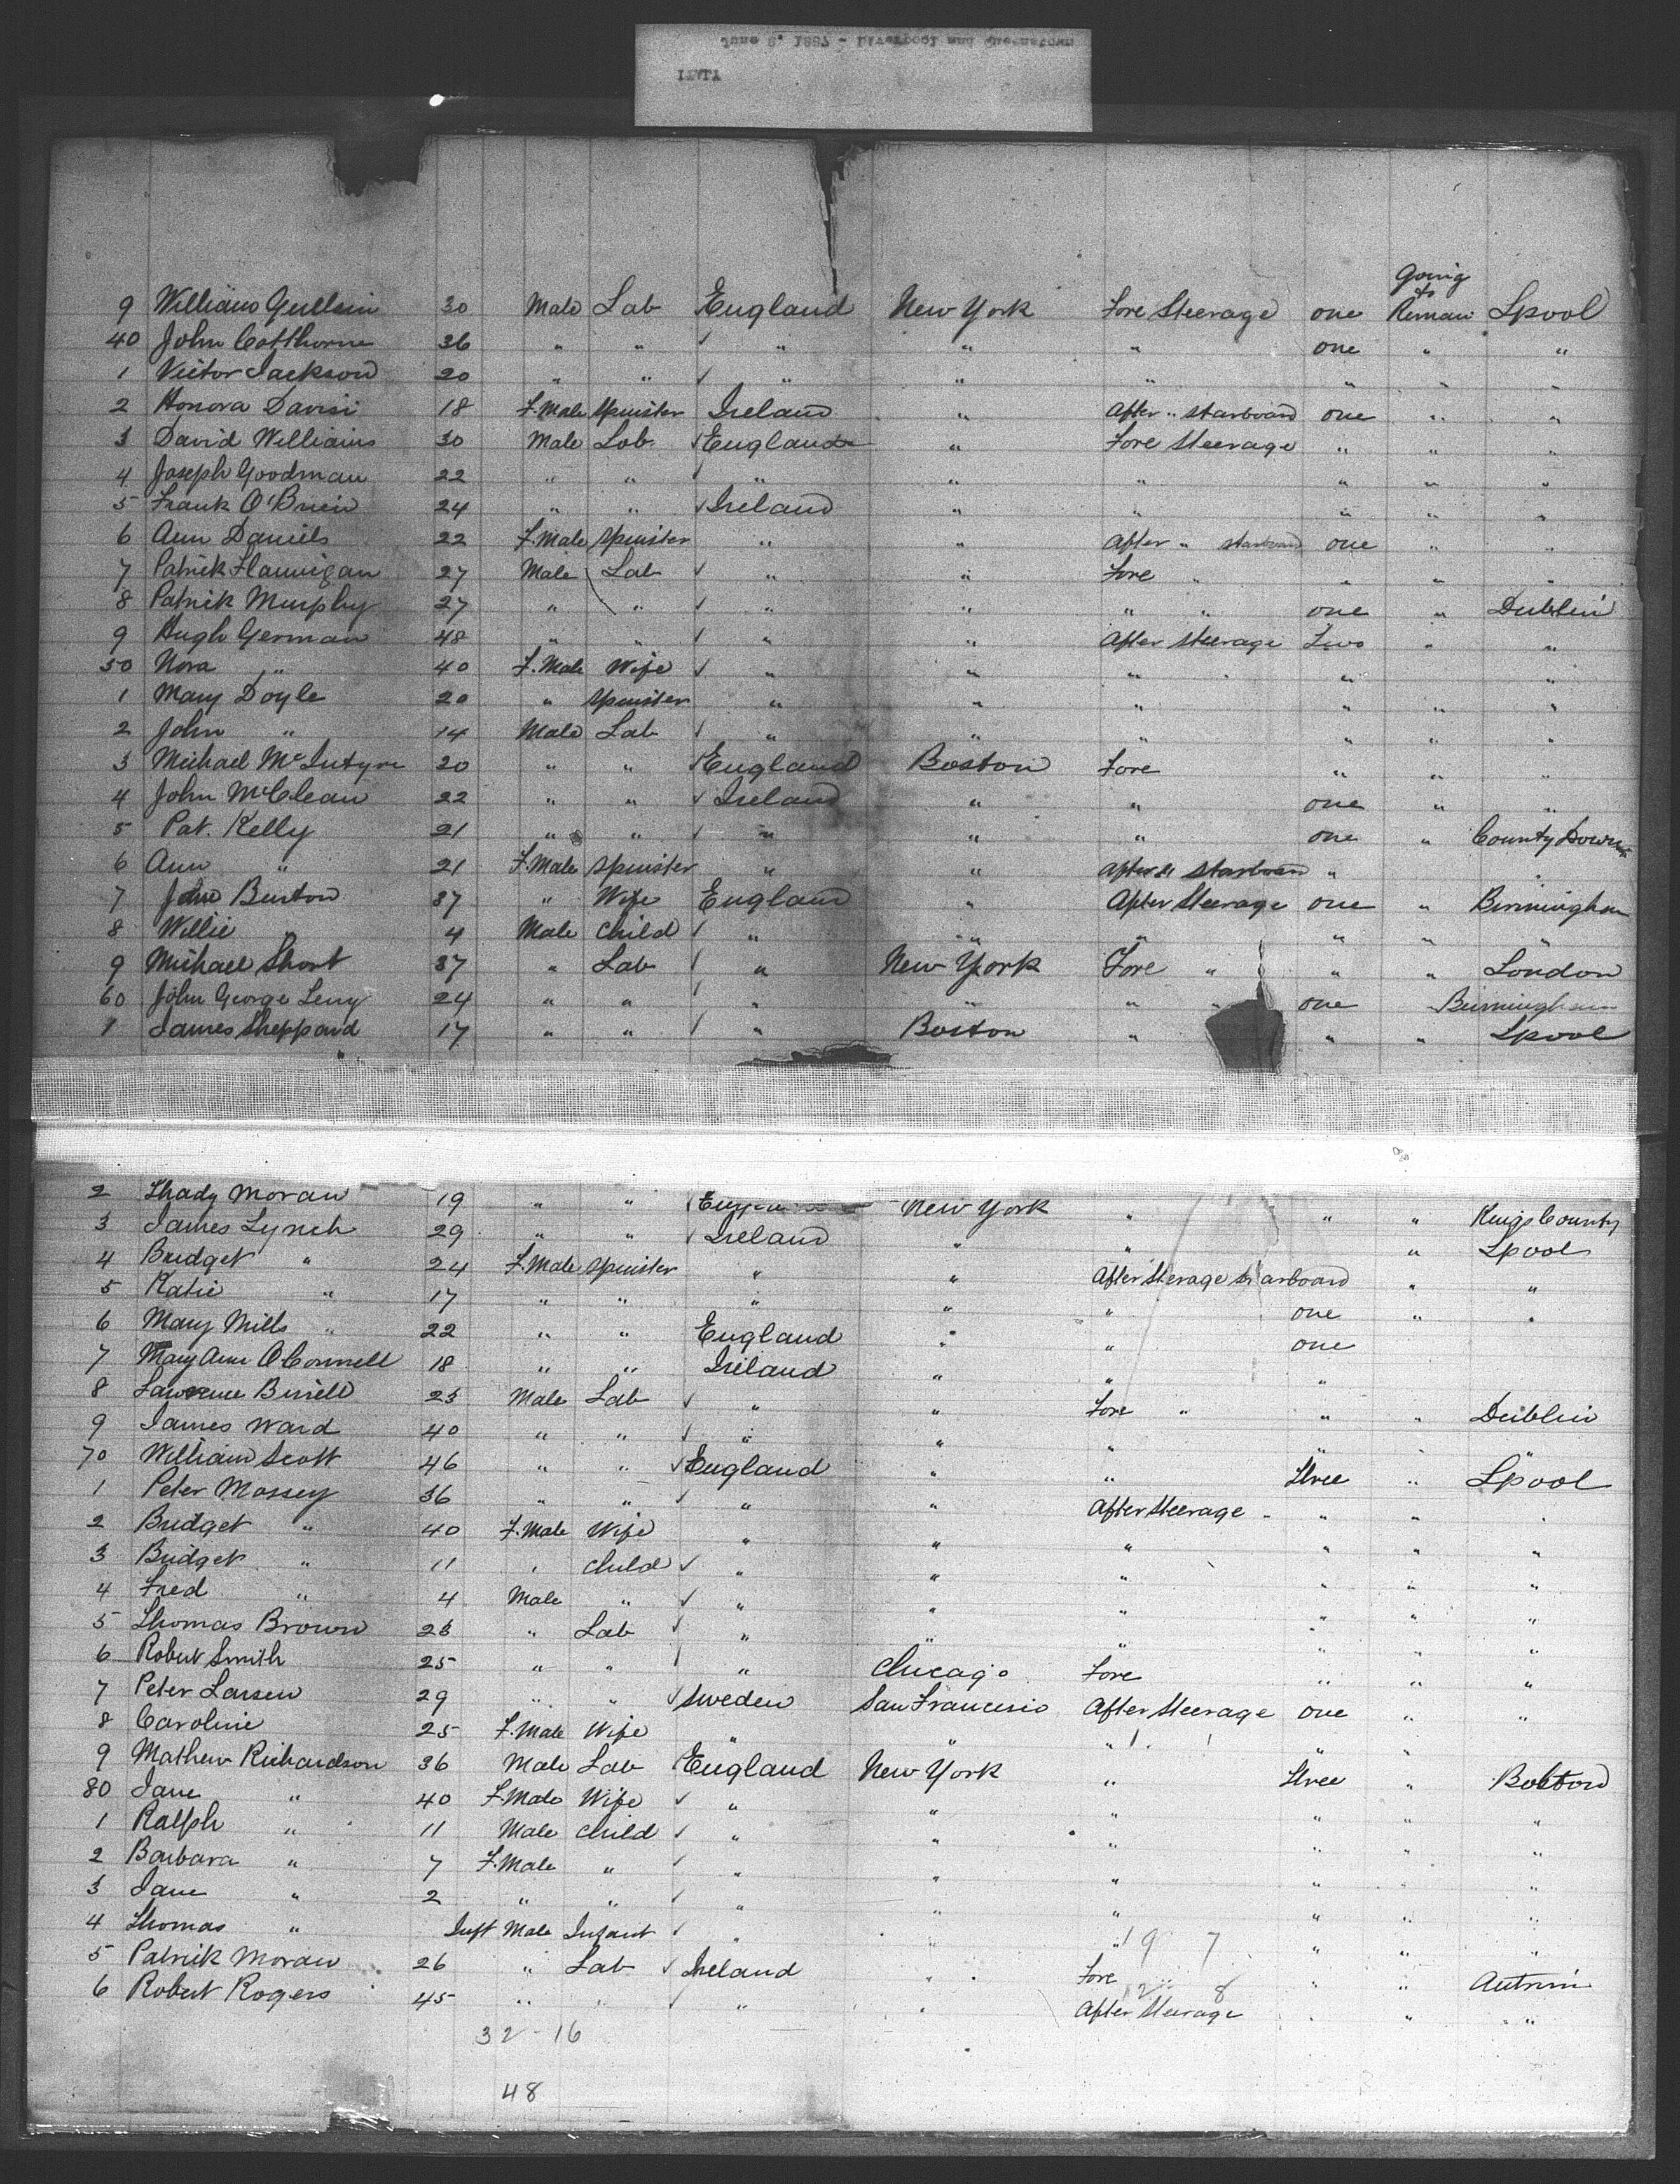 June 8, 1887 - Liverpool and Queenstown
ITALY
Going to
9 William Gullein 30 Male Lab England New York Fore Steerage one Remain Lpool
40 John Cotthorne 36 " " ✓ " " " one " "
1 Victor Jackson 20 " " ✓ " " " " " "
2 Honora Davisi 18 F.Male Spinster Ireland " After " starboard one " "
3 David Williams 30 Male Lab. ✓ England " Fore Steerage " " "
4 Joseph Goodman 22 " " ✓ " " " " " "
5 Frank O'Brien 24 " " ✓ Ireland " " " " "
6 Ann Daniels 22 F.Male Spinster " " After " starboard one " "
7 Patrick Flannigan 27 Male Lab ✓ " " Fore " " " "
8 Patrick Murphy 27 " " ✓ " " " " one " Dublin
9 Hugh German 48 " " ✓ " " After Steerage Two " "
50 Nora " 40 F.Male Wife ✓ " " " " "
1 Mary Doyle 20 " Spinster " " " " " "
2 John " 14 Male Lab ✓ " " " " " "
3 Michael McIntyre 20 " " ✓ England Boston Fore " " "
4 John McClean 22 " " ✓ Ireland " " one " "
5 Pat. Kelly 21 " " ✓ " " " one " County Down
6 Ann " 21 F.Male Spinster " After St starboard " "
7 Jane Burton 37 " Wife England " After Steerage one " Birmingham
8 Willie 4 Male Child ✓ " " " " " "
9 Michael Short 37 " Lab ✓ " New York Fore " " " London
60 John George Leny 24 " " ✓ " " " " one Birmingham
1 James Sheppard 17 " " ✓ " Boston " " " Lpool
2 Thady Moran 19 " " ✓ New York " " " Kings County
3 James Lynch 29 " " ✓ Ireland " " " Lpool
4 Bridget " 24 F.Male Spinster " " After Sterage Starboard " "
5 Katie " 17 " " " " " one " "
6 Mary Mills " 22 " " England " " one
7 Mary Ann O'Connell 18 " " Ireland " " "
8 Lawrence Birrell 23 Male Lab ✓ " " Fore " " " Dublin
9 James Ward 40 " " ✓ " " " " " "
70 William Scott 46 " " ✓ England " " Three " Lpool
1 Peter Massey 36 " " ✓ " " After Steerage " " "
2 Bridget " 40 F.Male Wife " " " " " "
3 Bridget " 11 " Child ✓ " " " " " "
4 Fred " 4 Male " ✓ " " " " " "
5 Thomas Brown 23 " Lab ✓ " " " " " "
6 Robert Smith 25 " " ✓ " Chicago Fore " " "
7 Peter Larsen 29 " " ✓ Sweden San Francesio After Steerage one " "
8 Caroline 25 F.Male Wife " " " " "
9 Mathew Richardson 36 Male Lab England New York " Three " Bolton
80 Jane " 40 F.Male Wife ✓ " " " " " "
1 Ralph " 11 Male Child ✓ " " " " " "
2 Barbara " 7 F.Male " ✓ " " " " " "
3 Jane " 2 " " ✓ " " " " " "
4 Thomas " Inft Male Infant ✓ " " " " " "
19 7
5 Patrick Moran 26 " Lab ✓ Ireland " Fore " " Antrim
12 8
6 Robert Rogers 45 " " ✓ " " After Steerage " " "
32 - 16
48